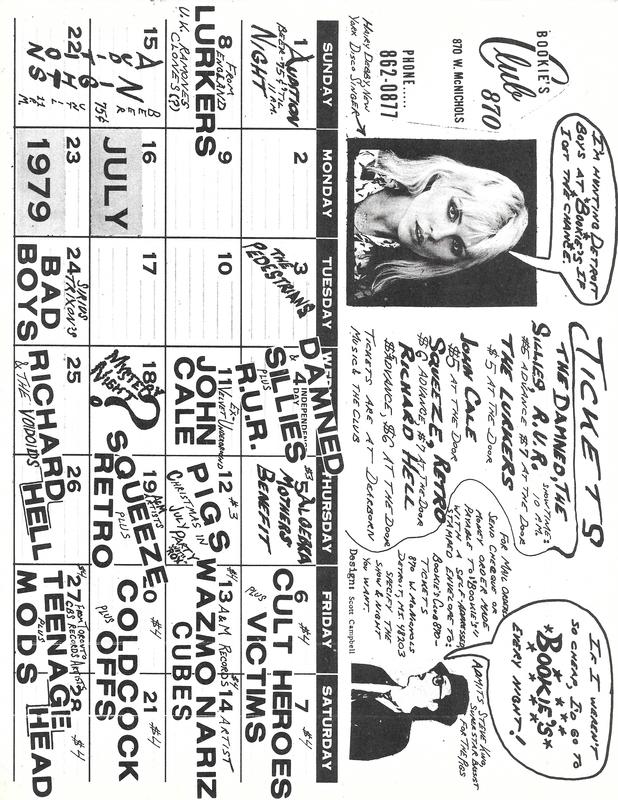 BOOKIE'S
Club 870
870 W. McNICHOLS
PHONE.....
862-0877
HAIRY DEBBY, NEW
YORK DISCO SINGER
I'M HUNTING DETROIT
BOYS AT "BOOKIE'S IF
I GOT THE CHANCE.
TICKETS
THE DAMNED, THE
SILLIES, R.U.R.
SHOWTIMES
10 A.M.
$5 ADVANCE $7 AT THE DOOR
THE LURKERS
$5 AT THE DOOR
JOHN CALE
$5 AT THE DOOR
SQUEEZE RETRO
$6 ADVANCE, $7 AT THE DOOR
RICHARD HELL
$5 ADVANCE, $6 AT THE DOOR
TICKETS ARE AT DEARBORN
MUSIC & THE CLUB
FOR MAIL ORDER
SEND CHEQUE OR
MONEY ORDER MADE
PAYABLE TO "BOOKIE'S"
WITH A SELF-ADDRESSED
STAMPED ENVELOPE TO-
BOOKIE'S CLUB 870-
TICKETS
870 W. McNICHOLS
DETROIT, MI. 48203
SPECIFY THE
SHOW & NIGHT
YOU WANT.
Design: Scott Campbell
IF I WEREN'T
SO CHEAP, I'D GO TO
*BOOKIE'S*
EVERY NIGHT!
ADMITS STEVE KING,
SUPERSTAR
FOR THE PIGS
SUNDAY
MONDAY
TUESDAY
THURSDAY
FRIDAY
SATURDAY
1
NIGHT
BEER-75¢
11 A.M.
2
3
THE
PEDESTRIANS
DAMNED
& 4 INDEPENDENCE
DAY
SILLIES
PLUS
R.U.R.
$3
5 ALGEBRA
MOTHERS
BENEFIT
6 $4
CULT HEROES
PLUS VICTIMS
7 $4
8 FROM
ENGLAND
LURKERS
U.K. RAMONES
CLONES (?)
9
10
11 EX-
VELVET UNDERGROUND
JOHN
CALE
12 $3
PIGS
CHRISTMAS IN
JULY PARTY
$4
13 A&M RECORDS
14 ARTIST
$4
WAZMO NARIZ
CUBES
15
75¢
16
JULY
17
18
MYSTERY
NIGHT?
19 A&M
ARTISTS
SQUEEZE
PLUS
RETRO
20 $4
COLDCOCK
PLUS OFFS
21 $4
22
23
1979
24 SIRIUS
TRIXON'S
BAD
BOYS
25
26
RICHARD HELL
& THE VOIDOIDS
$4
27 FROM TORONTO
CBS RECORDS ARTISTS
28 $4
TEENAGE HEAD
PLUS
MODS